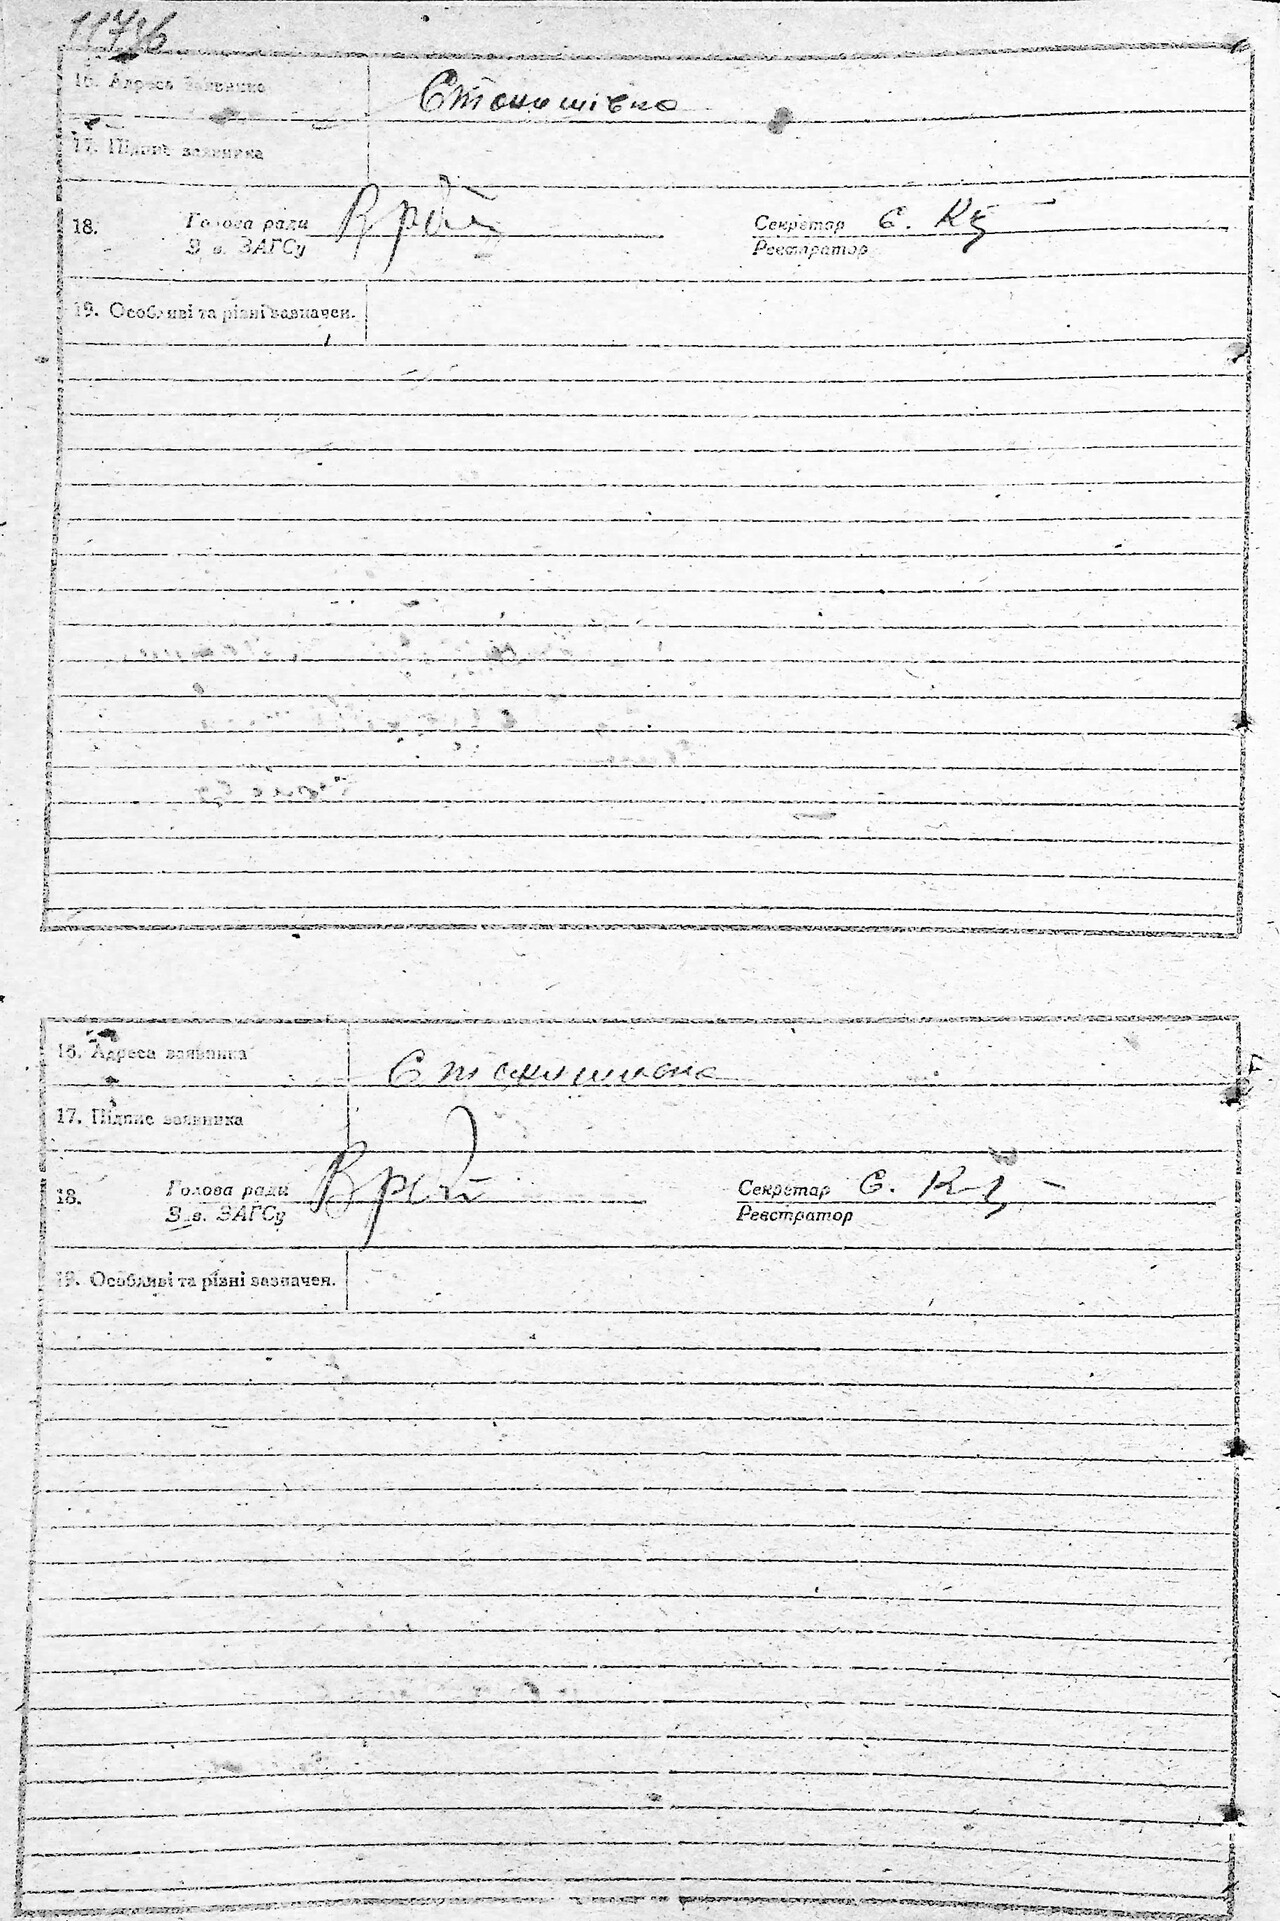 16. Адреса заявника Станишівка
17. Підпис заявника
18. Голова ради Секретар Є. К
З в. ЗАГСу Реєстратор
19. Особливі та різні зазначен.
16. Адреса заявника Станишівка
17. Підпис заявника
18. Голова ради Секретар Є. К
З в. ЗАГСу Реєстратор
19. Особливі та різні зазначен.